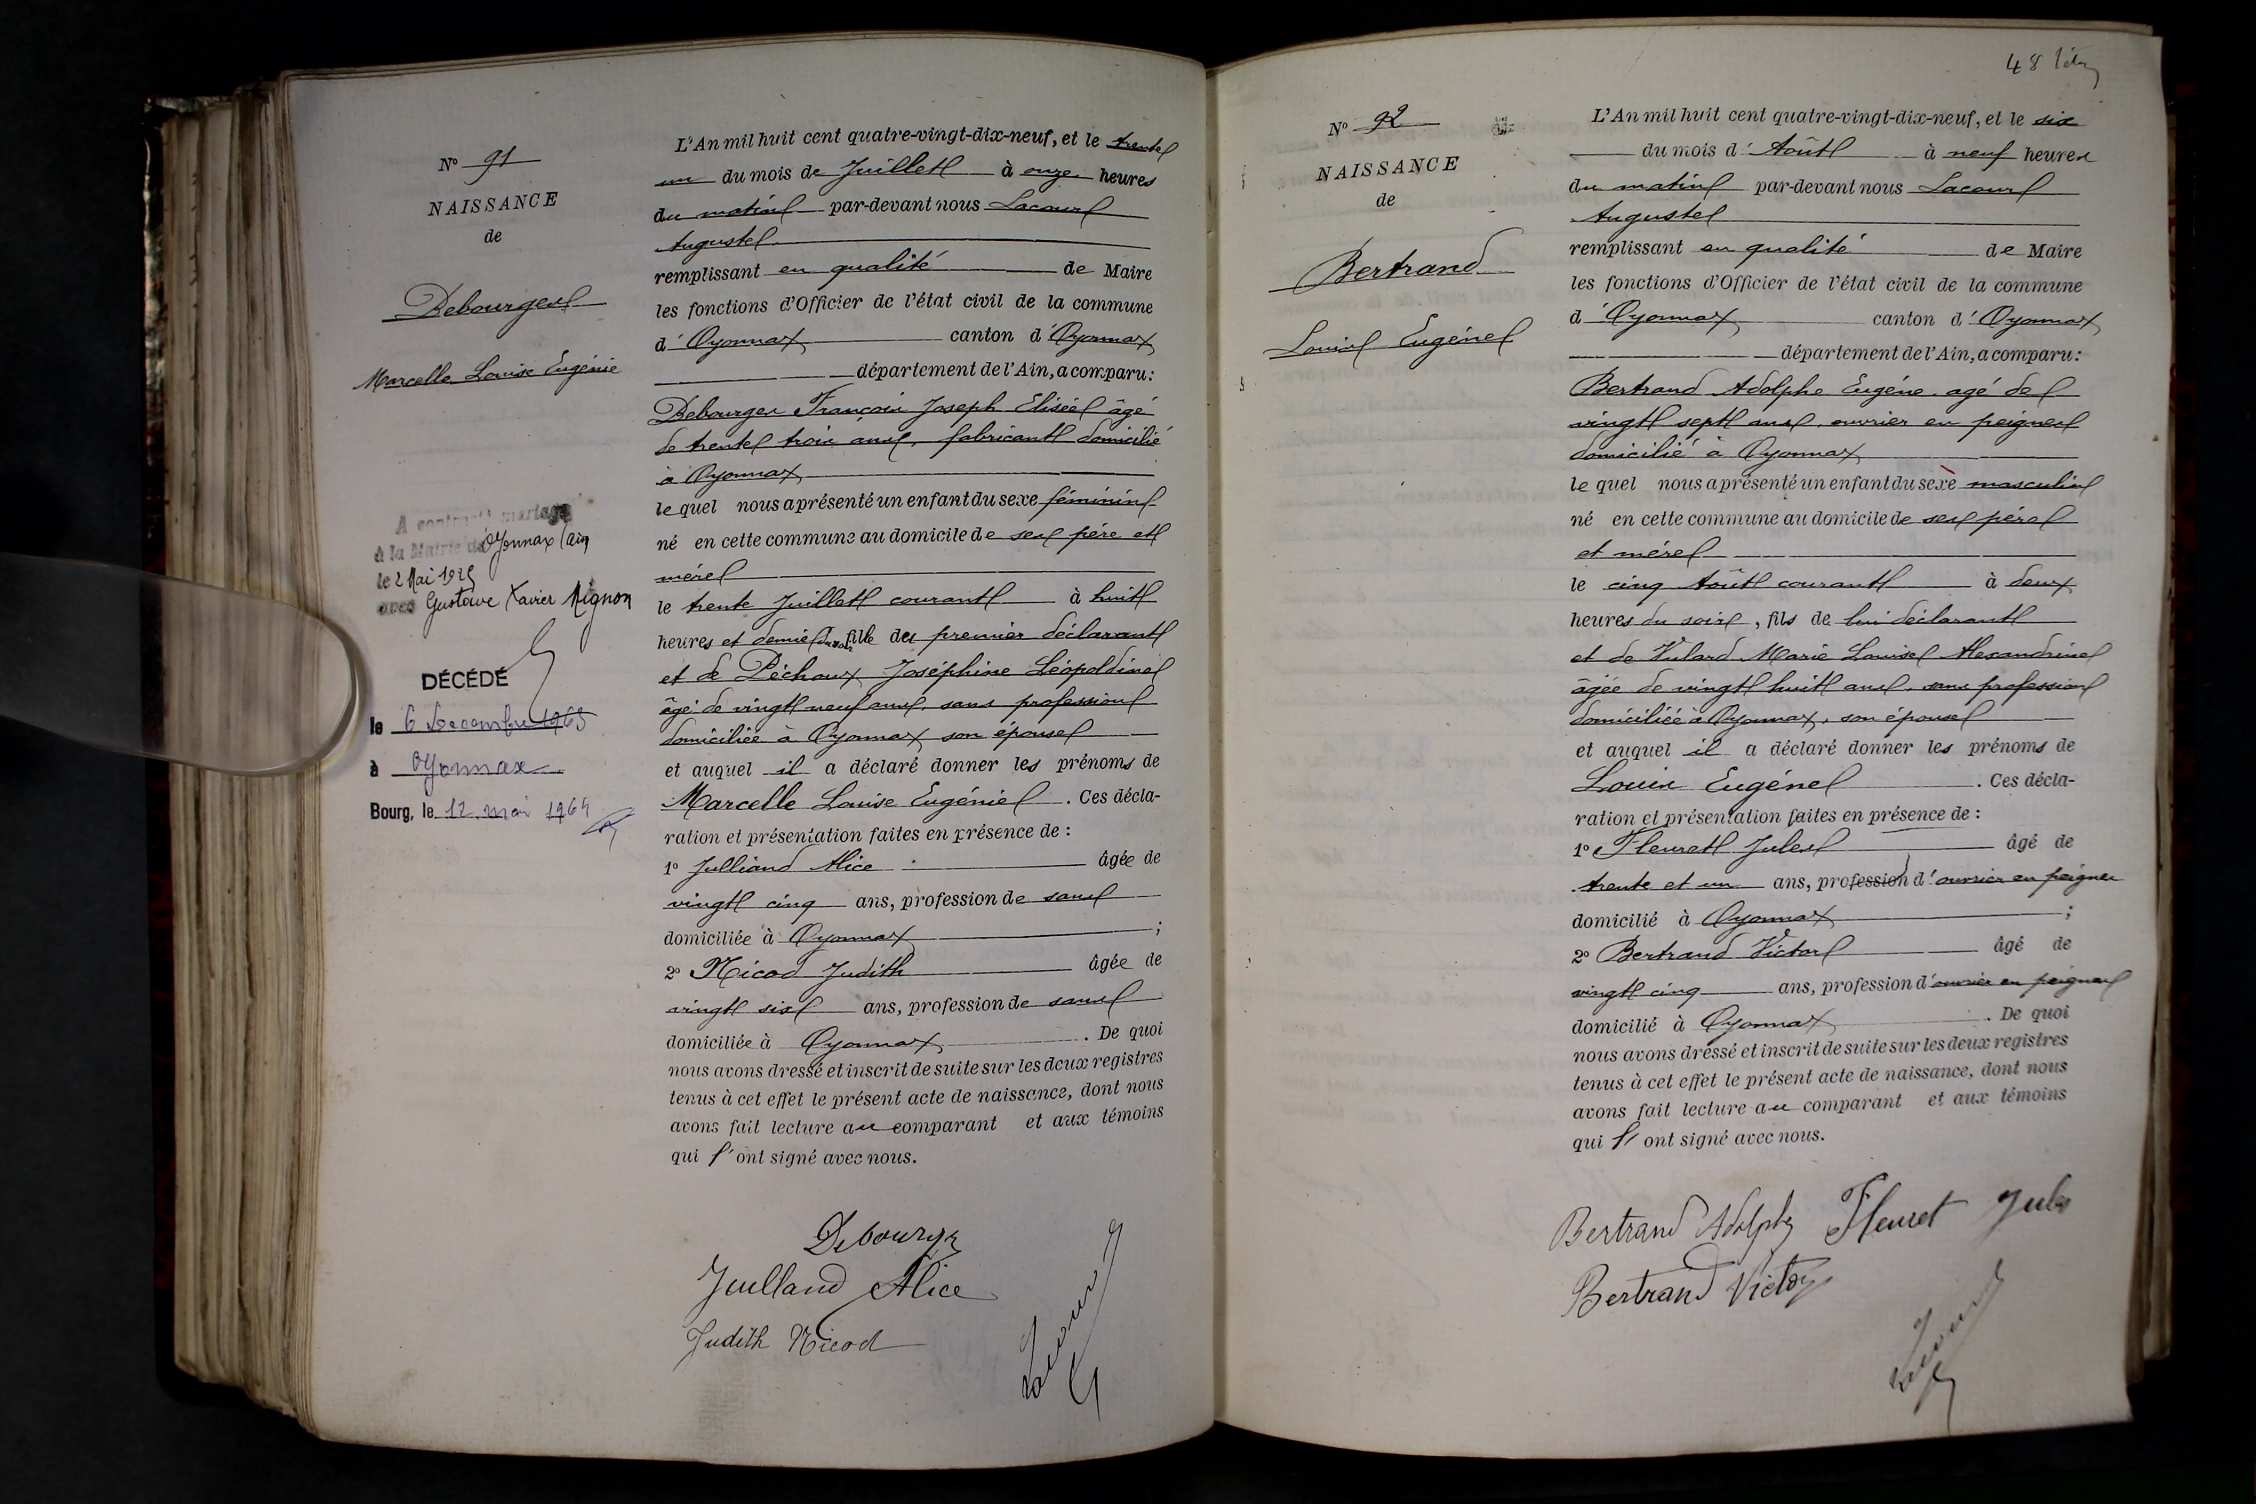 N° 91
NAISSANCE
de
Debourges
Marcelle Louise Eugénie
A contracté mariage
à la Mairie de Oyonnax (Ain)
le 2 Mai 1925
avec Gustave Xavier Mignon
DÉCÉDÉ
le 6 Decembre 1963
à Oyonnax
Bourg, le 12 mai 1964
L'An mil huit cent quatre-vingt-dix-neuf, et le trente
un du mois de Juillet à onze heures
du matin par-devant nous Lacour
Auguste
remplissant en qualité de Maire
les fonctions d'Officier de l'état civil de la commune
d'Oyonnax canton d'Oyonnax
département de l'Ain, a comparu:
Debourges François Joseph Elisée âgé
de trente trois ans, fabricant domicilié
à Oyonnax
le quel nous a présenté un enfant du sexe féminin
né en cette commune au domicile de ses père et
mère
le trente Juillet courant à huit
heures et demie du soir fille des premier déclarant
et de Péchoux Joséphine Léopoldine
âgé de vingt neuf ans, sans profession
domiciliée à Oyonnax son épouse
et auquel il a déclaré donner les prénoms de
Marcelle Louise Eugénie. Ces décla-
ration et présentation faites en présence de :
1° Julliand Alice âgée de
vingt cinq ans, profession de sans
domiciliée à Oyonnax ;
2° Nicod Judith âgée de
vingt six ans, profession de sans
domiciliée à Oyonnax. De quoi
nous avons dressé et inscrit de suite sur les deux registres
tenus à cet effet le présent acte de naissance, dont nous
avons fait lecture au comparant et aux témoins
qui l'ont signé avec nous.
Debourges
Juilland Alice
Judith Nicod
Lacour
48
N° 92
NAISSANCE
de
Bertrand
Louis Eugène
L'An mil huit cent quatre-vingt-dix-neuf, et le six
du mois d'Août à neuf heures
du matin par-devant nous Lacour
Auguste
remplissant en qualité de Maire
les fonctions d'Officier de l'état civil de la commune
d'Oyonnax canton d'Oyonnax
département de l'Ain, a comparu:
Bertrand Adolphe Eugène agé de
vingt sept ans, ouvrier en peignes
domicilié à Oyonnax
le quel nous a présenté un enfant du sexe masculin
né en cette commune au domicile de ses père
et mère
le cinq Août courant à deux
heures du soir, fils de lui déclarant
et de Vulard Marie Louise Alexandrine
âgée de vingt huit ans, sans profession
domiciliée à Oyonnax, son épouse
et auquel il a déclaré donner les prénoms de
Louis Eugène. Ces décla-
ration et présentation faites en présence de :
1° Fleuret Jules âgé de
trente et un ans, profession d'ouvrier en peignes
domicilié à Oyonnax ;
2° Bertrand Victor âgé de
vingt cinq ans, profession d'ouvrier en peignes
domicilié à Oyonnax. De quoi
nous avons dressé et inscrit de suite sur les deux registres
tenus à cet effet le présent acte de naissance, dont nous
avons fait lecture au comparant et aux témoins
qui l'ont signé avec nous.
Bertrand Adolphe Fleuret Jules
Bertrand Victor
Lacour